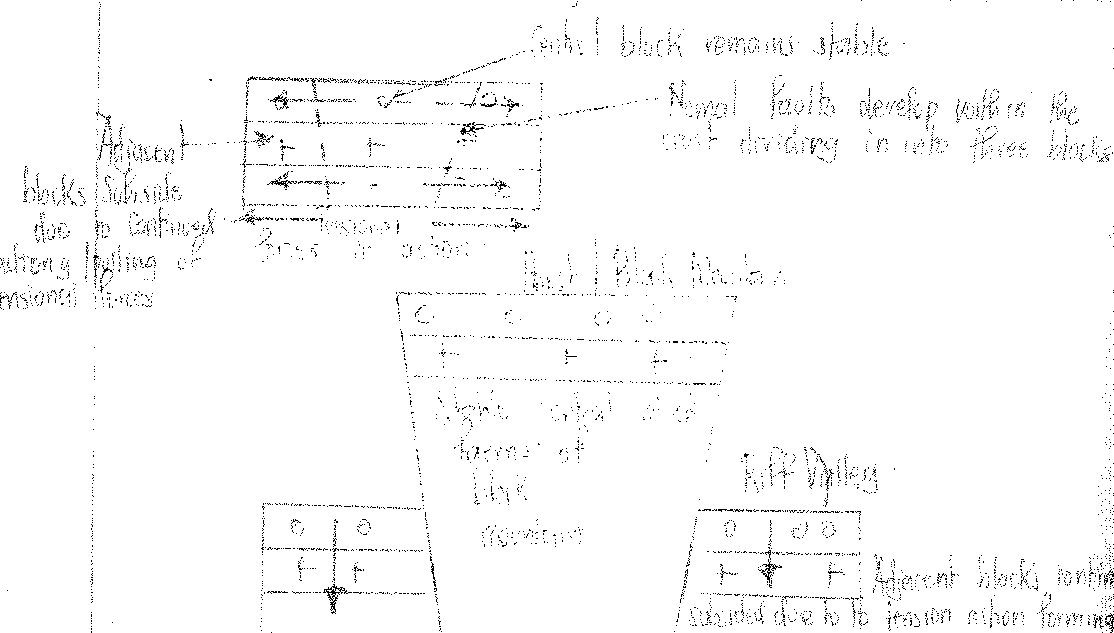 Central block remains stable.
Normal faults develop within the
crust dividing in into three blocks
Adjacent
blocks Subside
due to Continued
pulling of
Tensional
forces
forces in action
Horst / Block Mountain
block
Rift Valley
Adjacent blocks
subsided due to to tension action forming